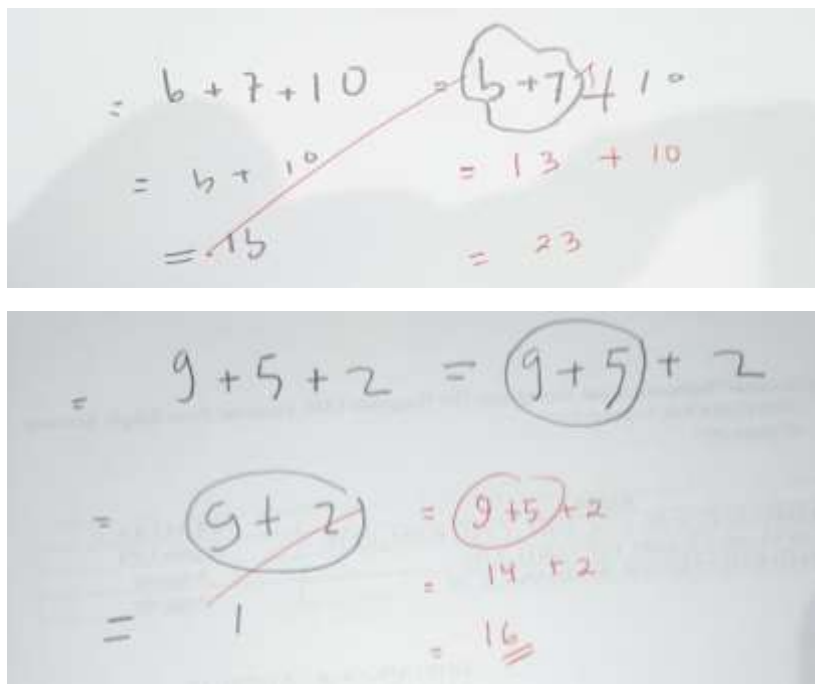 = 6 + 7 + 10 = 6 + 7 + 10
= 6 + 10 = 13 + 10
= 16 = 23
= 9 + 5 + 2 = 9 + 5 + 2
= 9 + 2 = 9 + 5 + 2
= 14 + 2
= 1
= 16